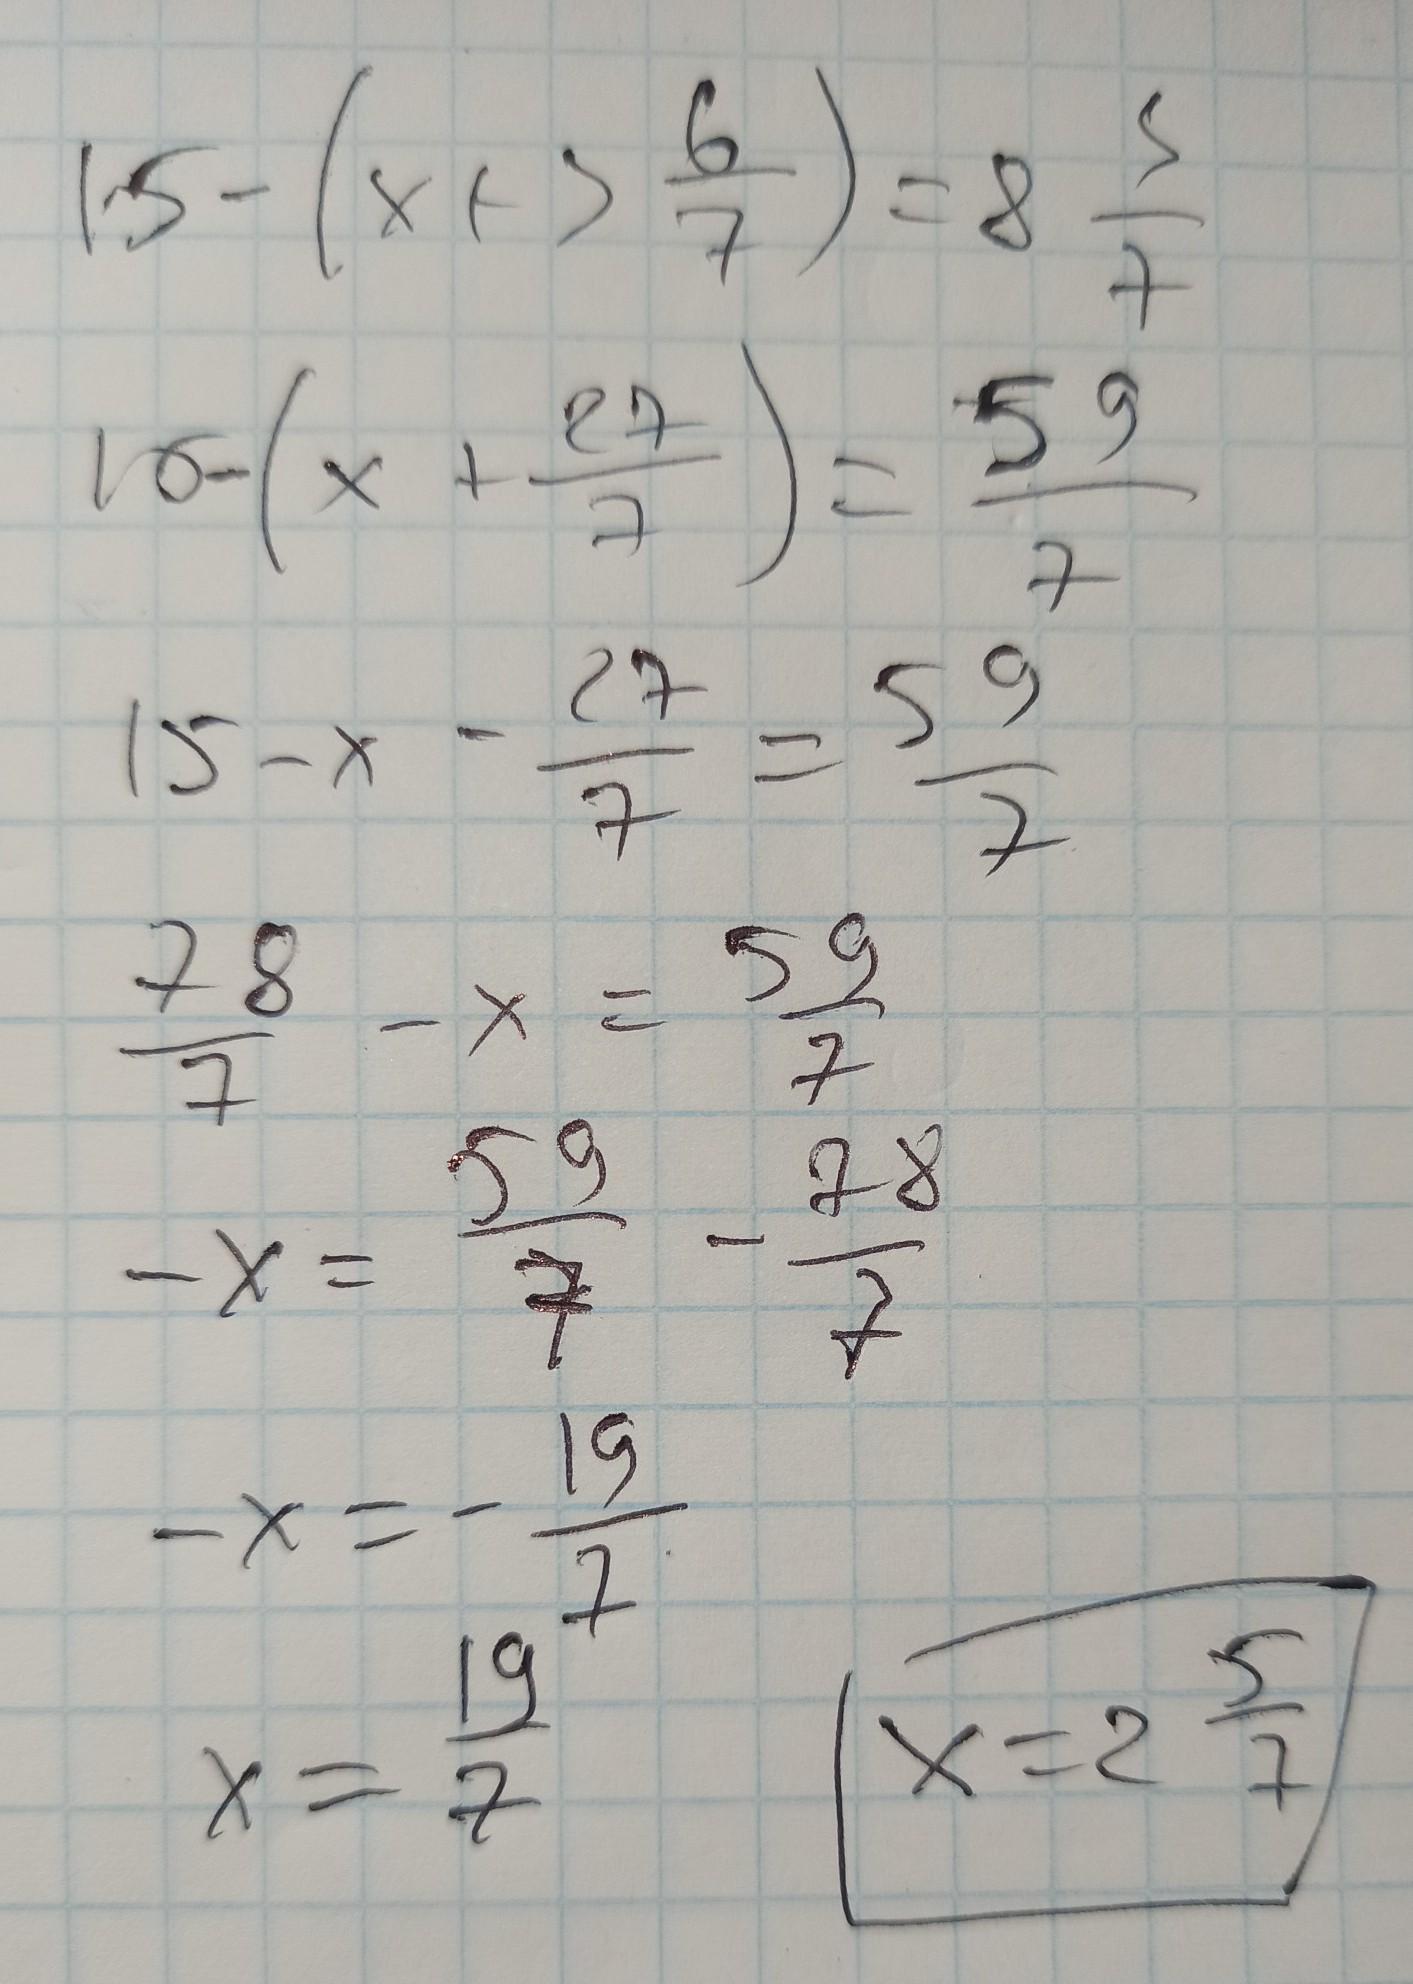 15 - (x + 3 6/7) = 8 3/7
15 - (x + 27/7) = 59/7
15 - x - 27/7 = 59/7
78/7 - x = 59/7
-x = 59/7 - 78/7
-x = - 19/7
x = 19/7
x = 2 5/7